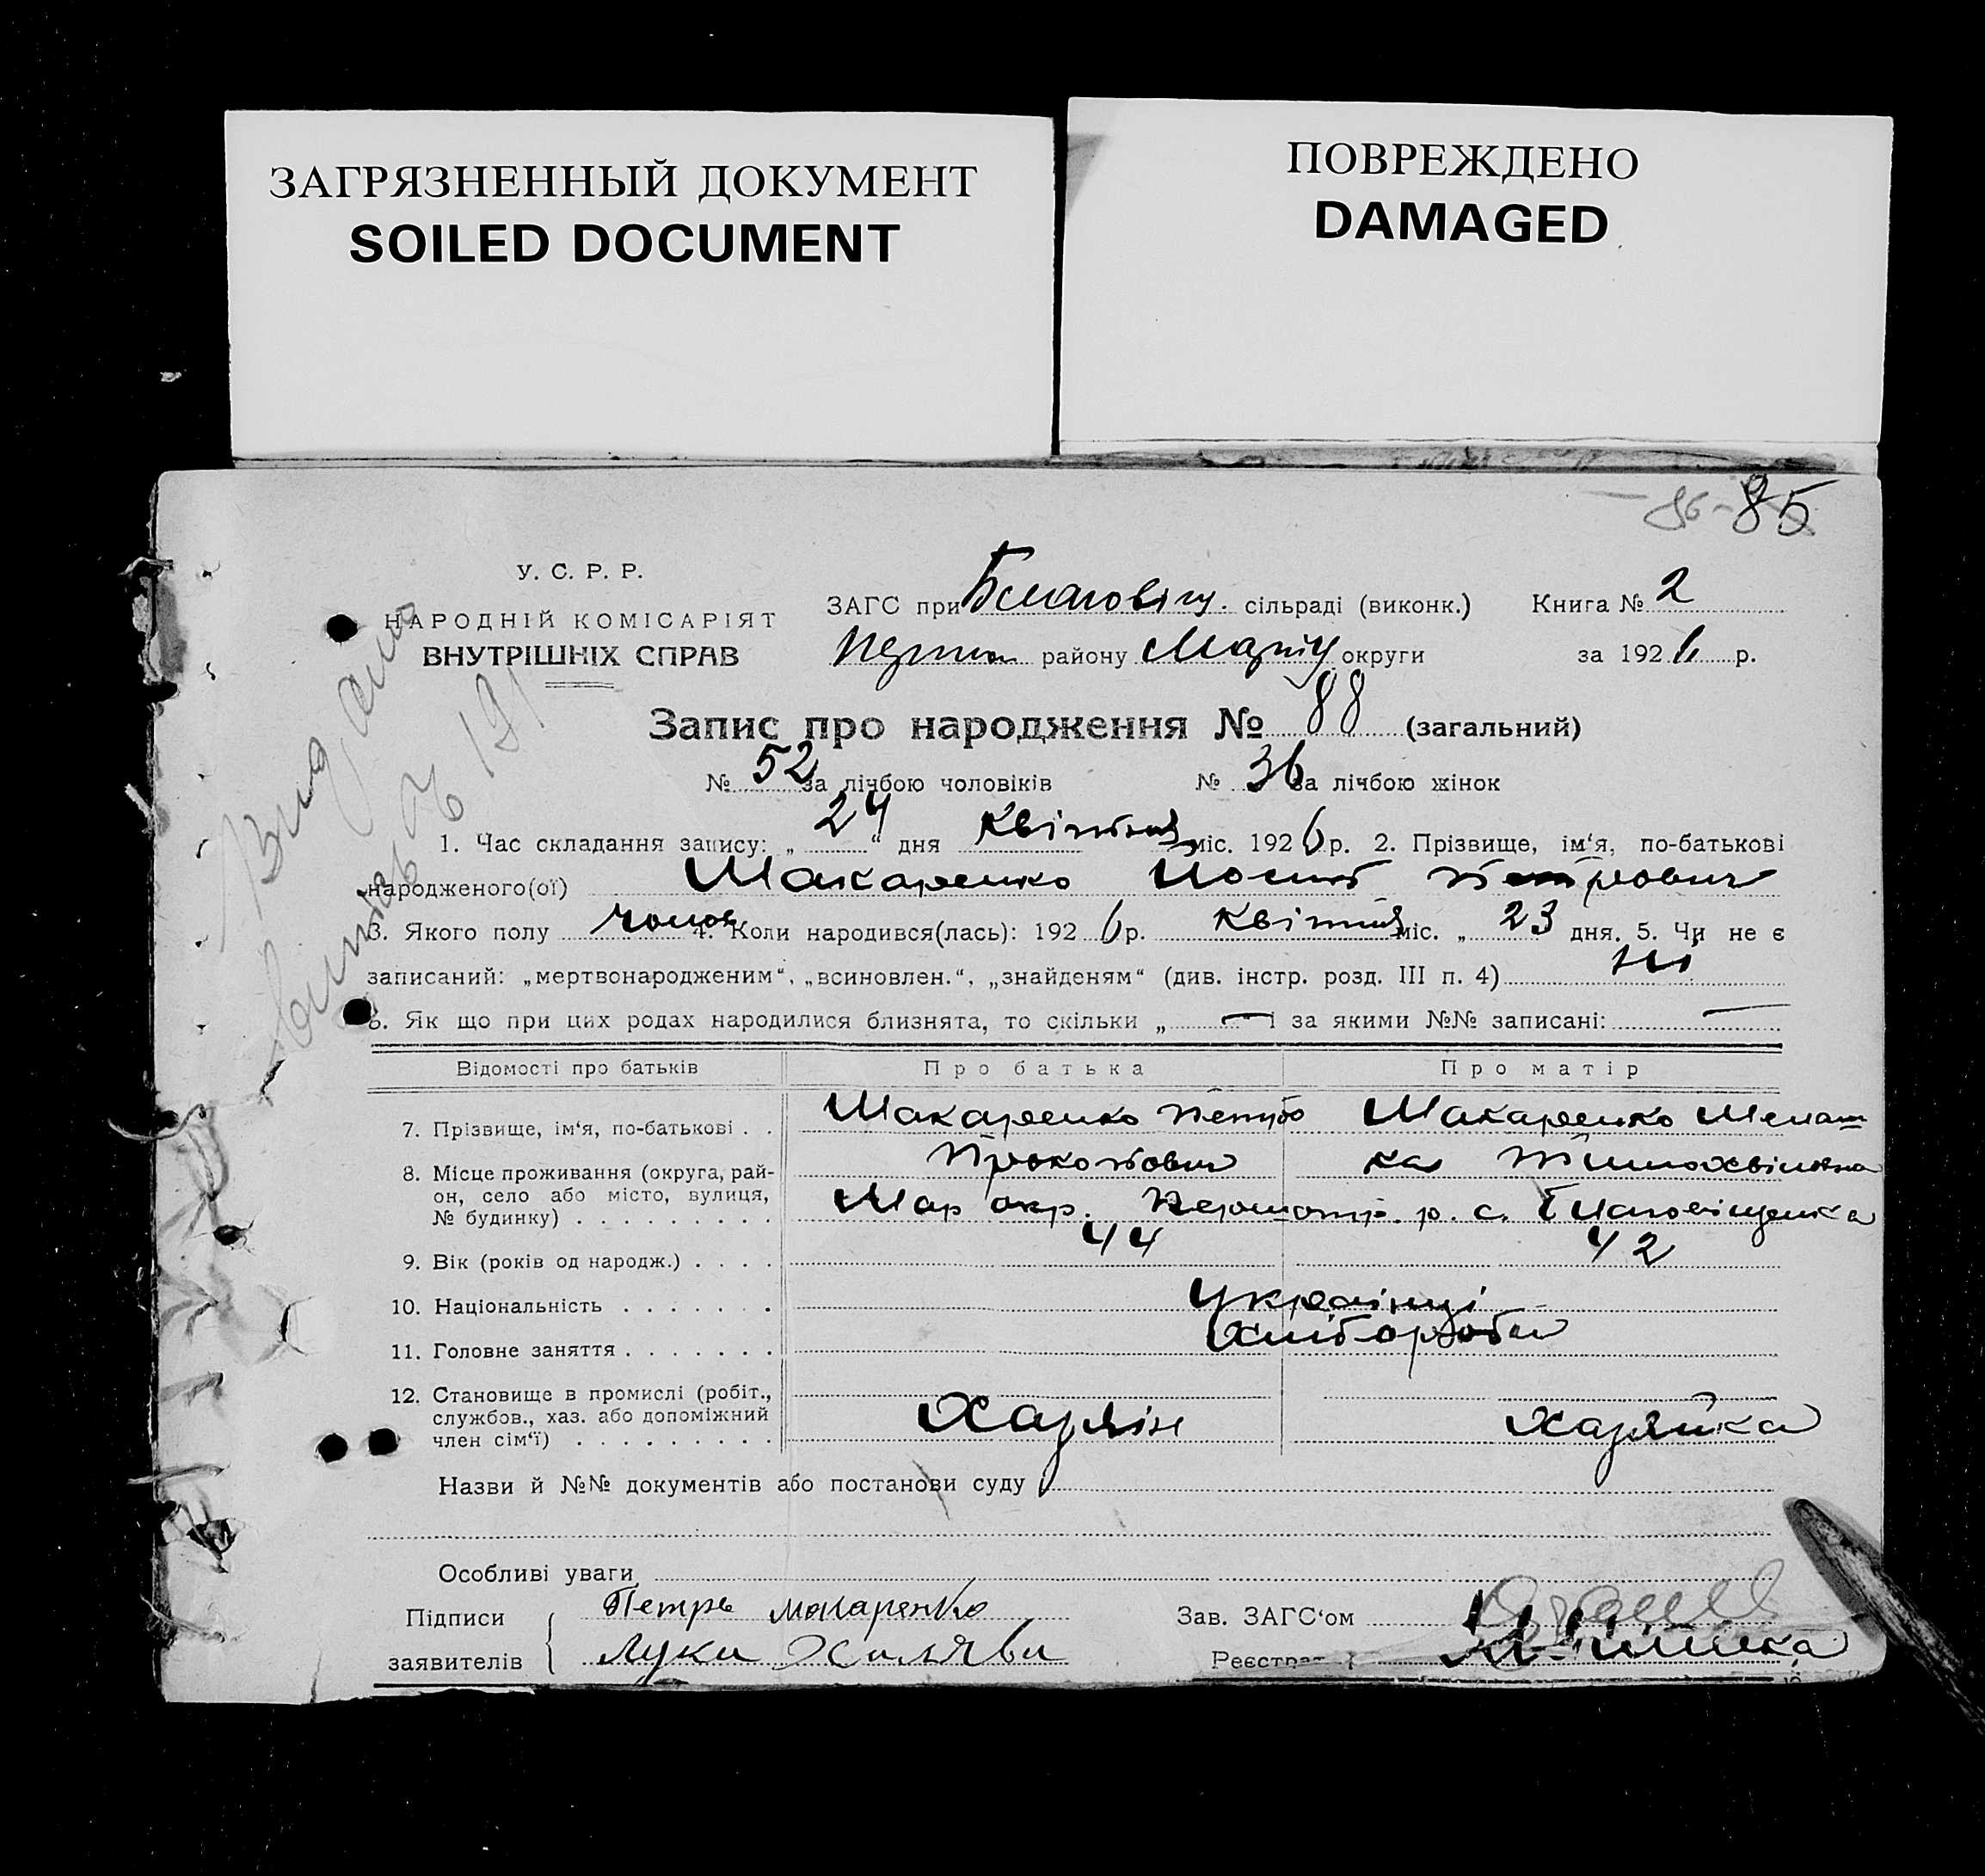 ЗАГРЯЗНЕННЫЙ ДОКУМЕНТ
SOILED DOCUMENT
ПОВРЕЖДЕНО
DAMAGED
86-85
У. С. Р. Р.
НАРОДНІЙ КОМІСАРІЯТ
ВНУТРІШНІХ СПРАВ
ЗАГС при Благовіщ. сільраді (виконк.) Книга № 2
району Маріуп округи за 1926 р.
Запис про народження № 88 (загальний)
№ 52 за лічбою чоловіків № 36 за лічбою жінок
1. Час складання запису: „24“ дня Квітня міс. 1926 р. 2. Прізвище, ім‘я, по-батькові
народженого(ої) Макаренко Йосип Петрович
3. Якого полу чолов 4. Коли народився(лась): 1926 р. Квітня міс. „23 дня. 5. Чи не є
записаний: „мертвонародженим“, „всиновлен.“, „знайденям“ (див. інстр. розд. III п. 4) ні
6. Як що при цих родах народилися близнята, то скільки „ — “ і за якими №№ записані: —
Відомості про батьків Про батька Про матір
7. Прізвище, ім‘я, по-батькові . . Макаренко Петро Макаренко Мелаш
Прокопович ка
8. Місце проживання (округа, рай-
он, село або місто, вулиця,
№ будинку) . . . . . . . . . Мар окр. р. с. Благовіщенка
9. Вік (років од народж.) . . . . 44 42
10. Національність . . . . . . . Українці
11. Головне заняття . . . . . . . Хлібороби
12. Становище в промислі (робіт.,
службов., хаз. або допоміжний
член сім‘ї) . . . . . . . . . Хазяін хазяйка
Назви й №№ документів або постанови суду
Особливі уваги
Підписи Петро Макаренко Зав. ЗАГС‘ом
заявителів Лука Халява Реєстрат